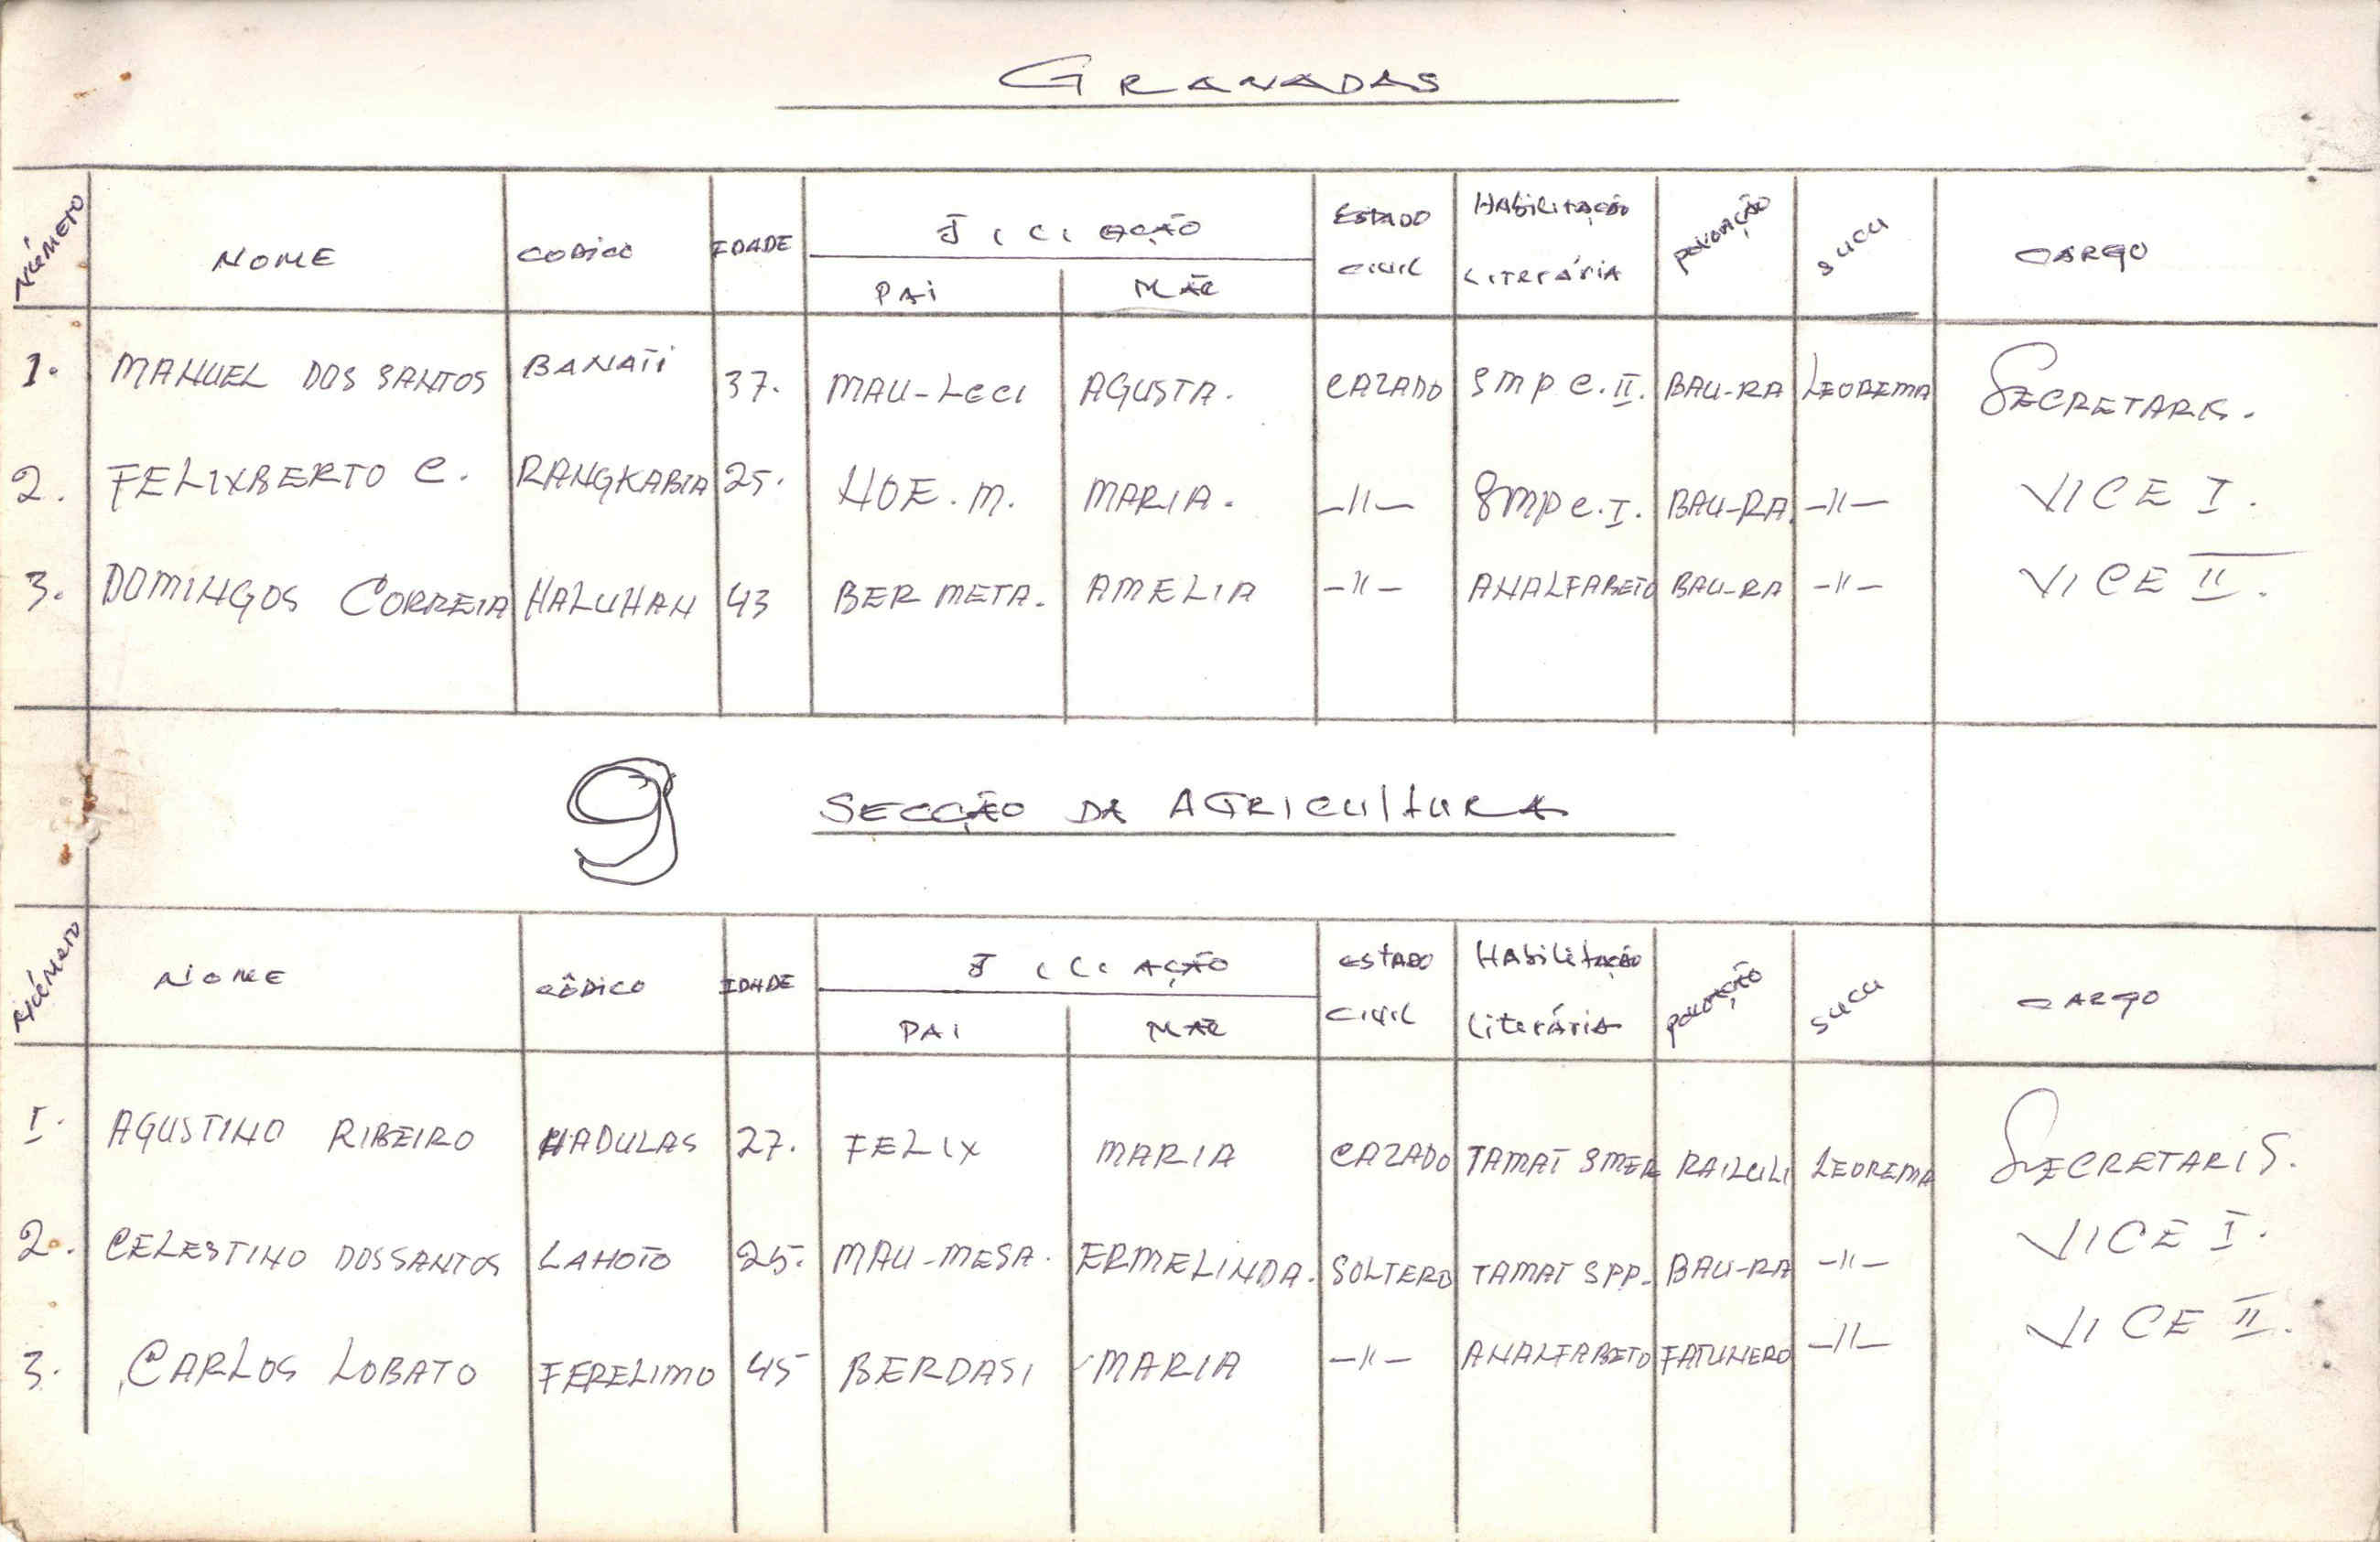 GRANADAS
NÚMERO NOME CODICO IDADE FILIAÇÃO ESTADO CIVIL HABILITAÇÃO LITERÁRIA POVOAÇÃO SUCU CARGO
PAI MÃE
1. MANUEL DOS SANTOS BANATI 37. MAU-LECI AGUSTA. CAZADO SMP C.II. BAU-RA LEOREMA SECRETARIS.
2. FELIXBERTO C. RANGKABIA 25. HOE.M. MARIA. -11- SMP C.I. BAU-RA. -11- VICE I.
3. DOMINGOS CORREIA HALUHAN 43 BER META. AMELIA -11- ANALFABETO BAU-RA -11- VICE II.
9 SECCÃO DA AGRICULTURA
NÚMERO NOME CÔDICO IDADE FILIAÇÃO ESTADO CIVIL HABILITAÇÃO LITERÁRIA POVOAÇÃO SUCU CARGO
PAI MÃE
I. AGUSTINO RIBEIRO HADULAS 27. FELIX MARIA CAZADO TAMAT SMER RAILULI LEOREMA SECRETARIS.
2. CELESTINO DOS SANTOS LAHOTO 25. MAU-MESA. ERMELINDA. SOLTERO TAMAT SPP. BAU-RA -11- VICE I.
3. CARLOS LOBATO FERELIMO 45 BERDASI MARIA -11- ANALFABETO FATUNERO -11- VICE II.